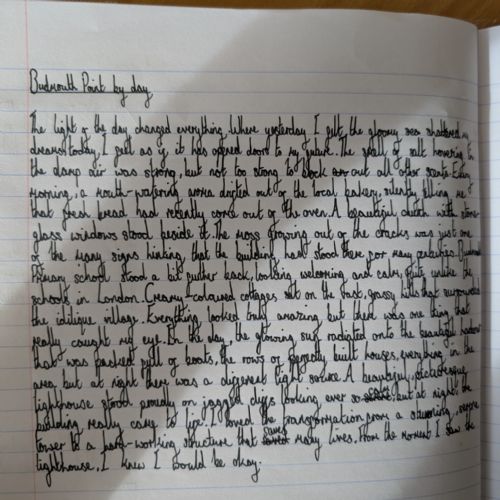 Budmouth Point by day
The light of the day changed everything. Where yesterday I felt the gloomy sea shattered my
dreams, today, I felt as if it has opened doors to my future. The smell of salt hovering in
the damp air was strong, but not too strong to block out all other scents. Every
morning, a mouth-watering aroma drifted out of the local bakery, silently telling me
that fresh bread had recently come out of the oven. A beautiful church with stained
glass windows stood beside it. The moss growing out of the cracks was just one
of the many signs hinting that the building had stood there for many centuries. Budmouth
Primary school stood a bit further back, looking welcoming and calm, quite unlike the
schools in London. Creamy-coloured cottages sat on the vast, grassy hills that surrounded
the idillique village. Everything looked truly amazing but there was one thing that
really caught my eye. In the day, the glowing sun radiated onto the beautiful
that was packed full of boats, the rows of perfectly built houses, everything in the
area but at night there was a different light source. A beautiful, picturesque
lighthouse stood proudly on jagged cliffs looking ever so but at night, the
building really came to life. I loved the transformation from a stunning, serene
tower to a hard-working structure that saves many lives. From the moment I saw the
lighthouse, I knew I would be okay.